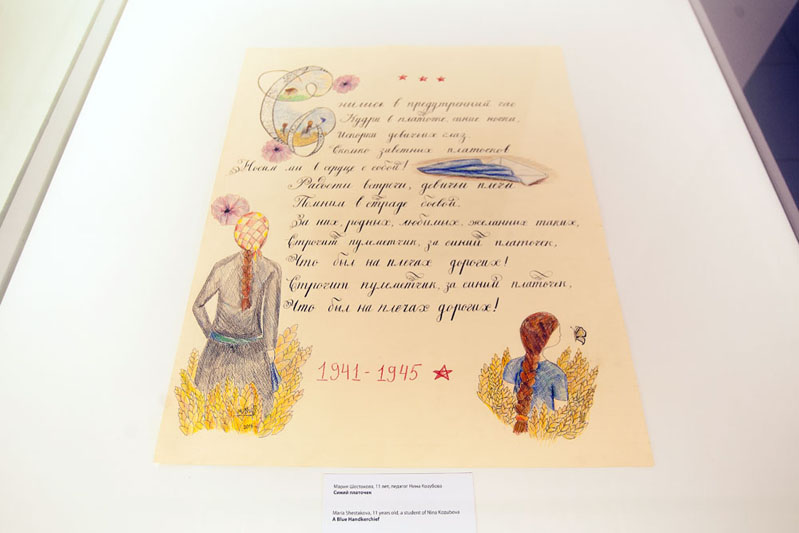 Снились в предутренний час
Кудри в платочке, синие ночки,
Искорки девичьих глаз
Сколько заветных платочков
Носим мы в сердце с собой!
Радости встречи, девичьи плечи
Помним в страде боевой.
За них, родных, любимых, желанных таких,
Строчит пулеметчик, за синий платочек,
Что был на плечах дорогих!
Строчит пулеметчик, за синий платочек,
Что был на плечах дорогих!
1941 - 1945
Мария Шестакова, 11 лет, педагог Нина Козубова
Синий платочек
Maria Shestakova, 11 years old, a student of Nina Kozubova
A Blue Handkerchief